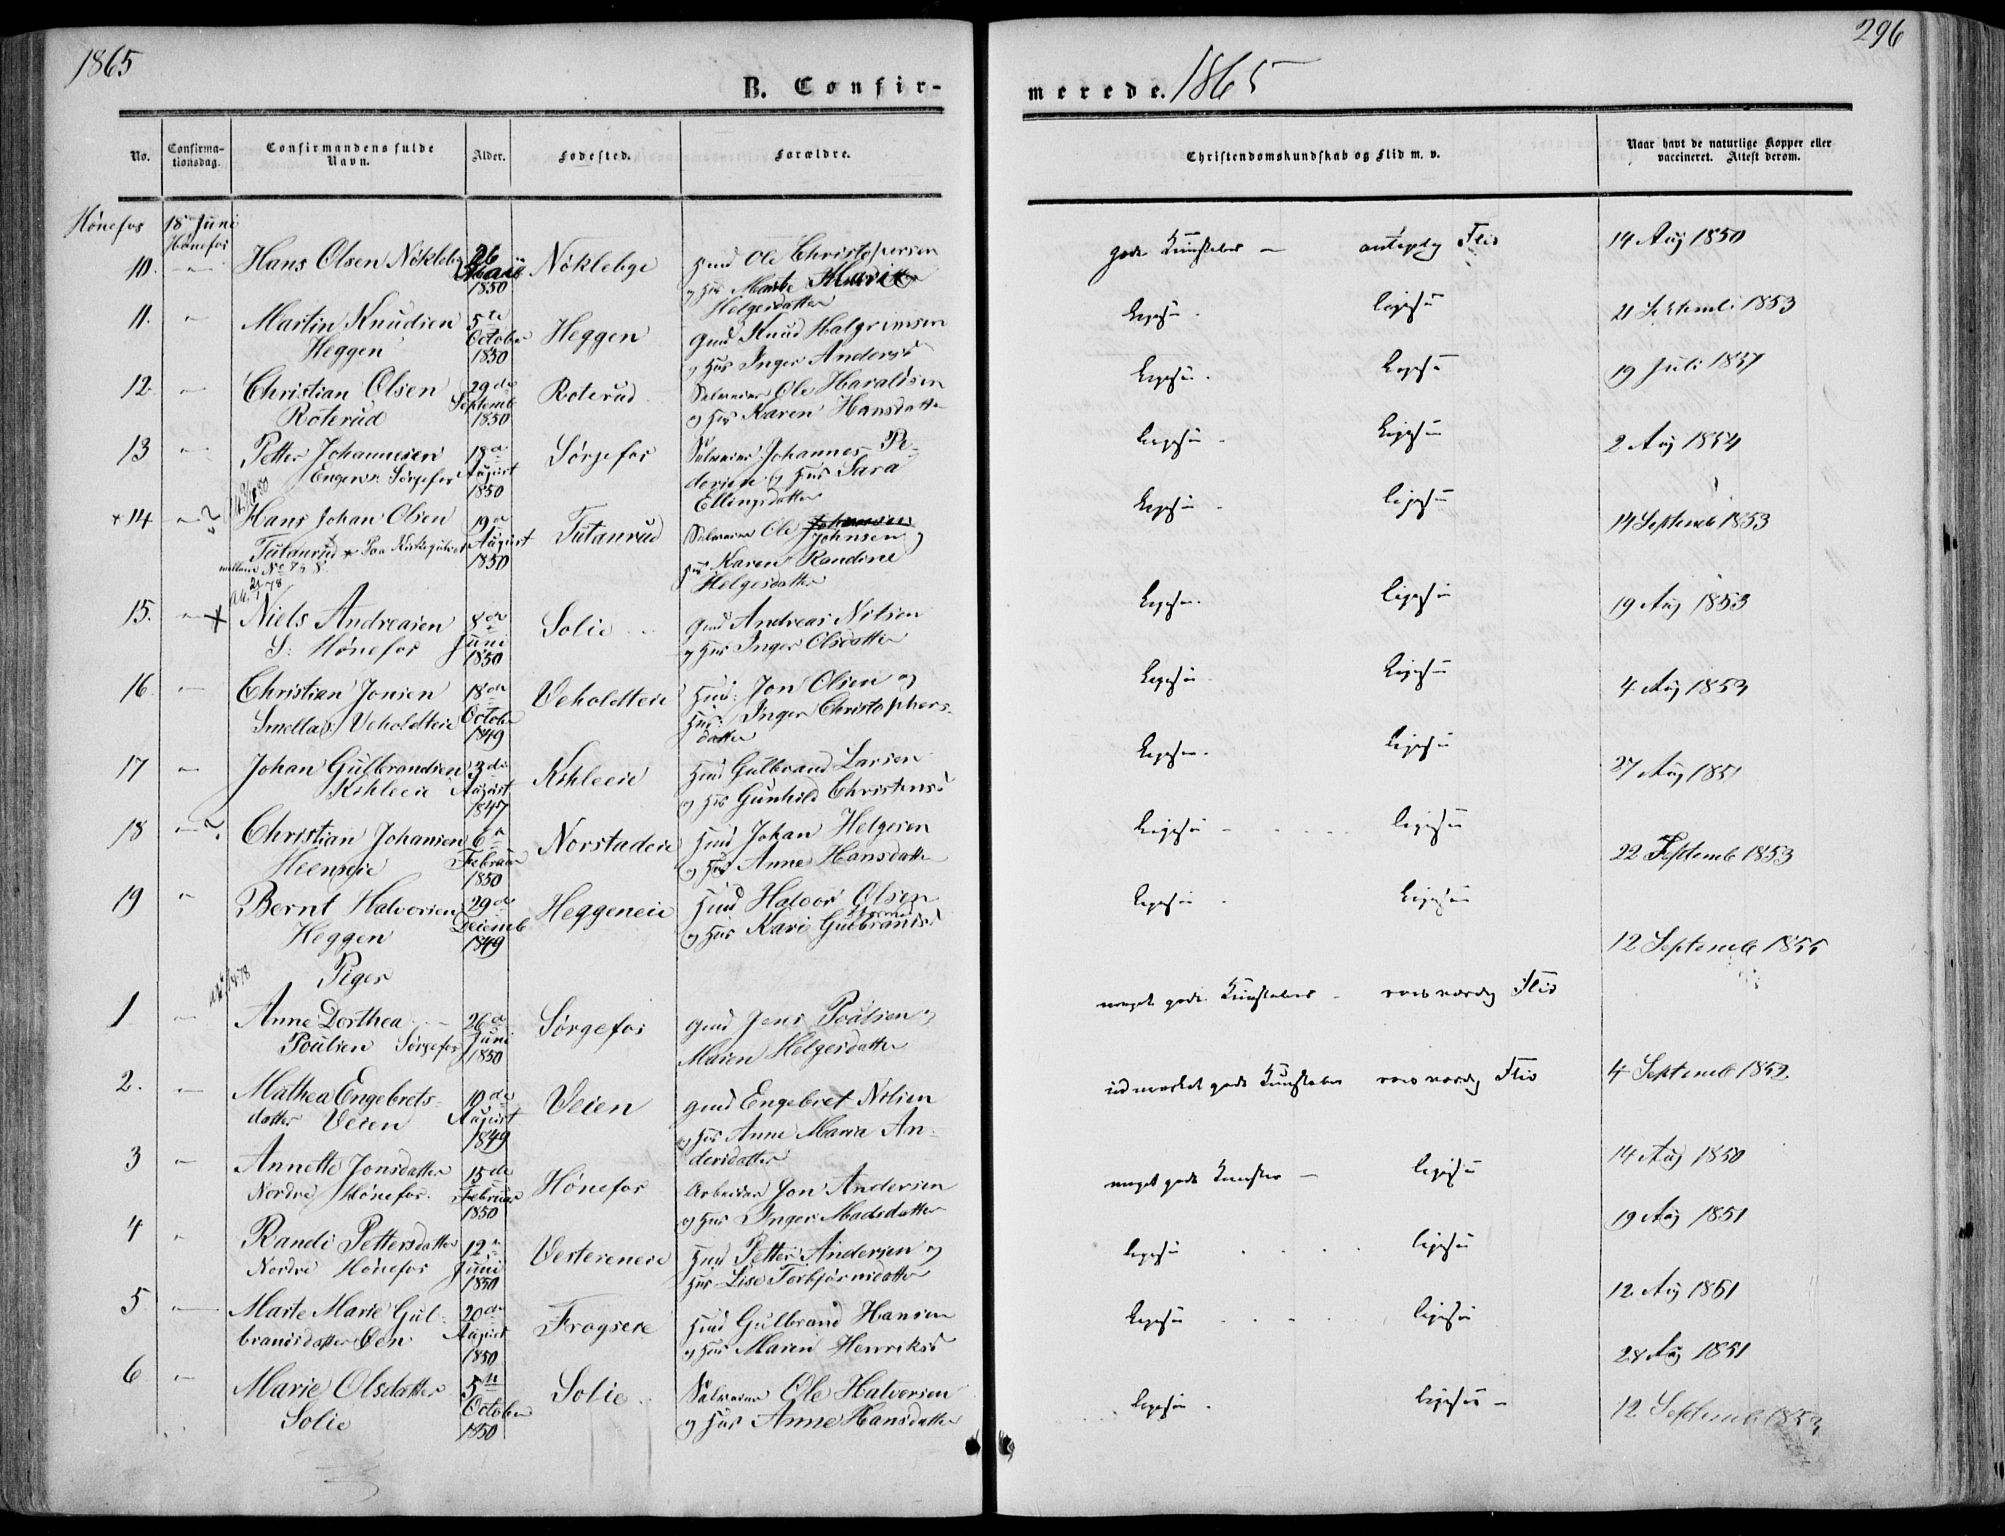 1865
296
B. Confir-
merede. 1865
No.
Confirma-
tionsdag.
Confirmandens fulde
Navn.
Alder.
Fødested.
Forældre.
Christendomskundskab og Flid m. v.
Naar havt de naturlige Kopper eller
vaccineret. Attest derom.
Hönefos 18 Juni
Hönefos
10. — Hans Olsen Nökleby 26 Maii 1850 Nöklebye
Huusmd Ole Christophersen
og Hus Marte Marie
Helgesdatter
gode Kundskaber — Flid 14 Aug 1850
11. — Martin Knudsen
Heggen
5te
October
1850
Heggen
Gmd Knud Halgrimsen
og Hus Inger Andersd
ligesaa ligesaa 21 Septemb 1853
12. — Christian Olsen
Roterud
29de
Septemb
1850
Roterud
Selveier Ole Haraldsen
og Hus Karen Hansdatter
ligesaa ligesaa 19 Juli 1857
13 — Petter Johannesen
Engen Sörgefos
18de
August
1850
Sörgefos
Selveier Johannes Pe-
dersen og Hus Sara
Ellingsdatter
ligesaa ligesaa 2 Aug 1854
+ 14 — Hans Johan Olsen
Tutanrud + Paa Kirkegulvet
mellem No 7 & 8
19de
August
1850
Tutanrud
Selveier Ole Johnsen og
Hus Karen Randine
Helgesdatter
ligesaa ligesaa 14 Septemb 1853
15. — + Niels Andreasen
S. Hönefos
8de
Juni
1850
Solie
Gmd Andreas Nilsen
og Hus Inger Olsdatter
ligesaa ligesaa 19 Aug 1853
16. — Christian Jonsen
Smellas/Veholdteie
18de
October
1849
Veholdteie
Hmd: Jon Olsen og
Hus: Inger Christophers-
datter
ligesaa ligesaa 4 Aug 1853
17 — Johan Gulbrandsen
Kihleeie
3de
August
1847
Kihleeie
Hmd Gulbrand Larsen
og Hus Gunhild Christensd
ligesaa ligesaa 27 Aug 1851
18 — ? Christian Johansen
6te
Februar
1850
Norstadeie
Hmd Johan Helgesen
og Hus Anne Hansdatter
ligesaa — ligesaa
22 Septemb 1853
19 — Bernt Halvorsen
Heggen
29de
Decemb
1849
Heggeneie
Hmd Halvor Olsen
og Hus Kari Gulbrandsd
ligesaa ligesaa
12 Septemb 1855
Piger
1 — Anne Dorthea
Poulsen Sörgefos
26de
Juni
1850
Sörgefos
Gmd Jens Poulsen og
Maren Helgesdatter
meget gode Kundskaber — roesværdig Flid
4 Septemb 1852
2. — Mathea Engebrets-
datter Veien
19de
August
1849
Veien
Gmd Engebret Nilsen
og Hus Anne Maria An-
dersdatter
udmærket gode Kundskaber roesværdig Flid
14 Aug 1850
3 — Annette Jonsdatter
Nordre Hönefos.
15de
Februar
1850
Hönefos
Arbeider Jon Andersen
og Hus Inger Madsdatter
meget gode Kundskaber — ligesaa
19 Aug 1851
4 Randi Pettersdatter
Nordre Hönefos
12te
Juni
1850
Vestereneie
Hmd Petter Andersen og
Hus Lise Torbjörnsdatter
ligesaa ligesaa
12 Aug 1861
5 — Marte Marie Gul-
brandsdatter Oen
20de
August
1850
Frogseie
Hmd Gulbrand Hansen
og Hus Maren Henriksd
ligesaa ligesaa
28 Aug 1851
6 — Marie Olsdatter
Solie
5te
October
1850
Solie
Selveier Ole Halvorsen
og Hus Anne Hansdatter
ligesaa ligesaa —
12 Septemb 1853